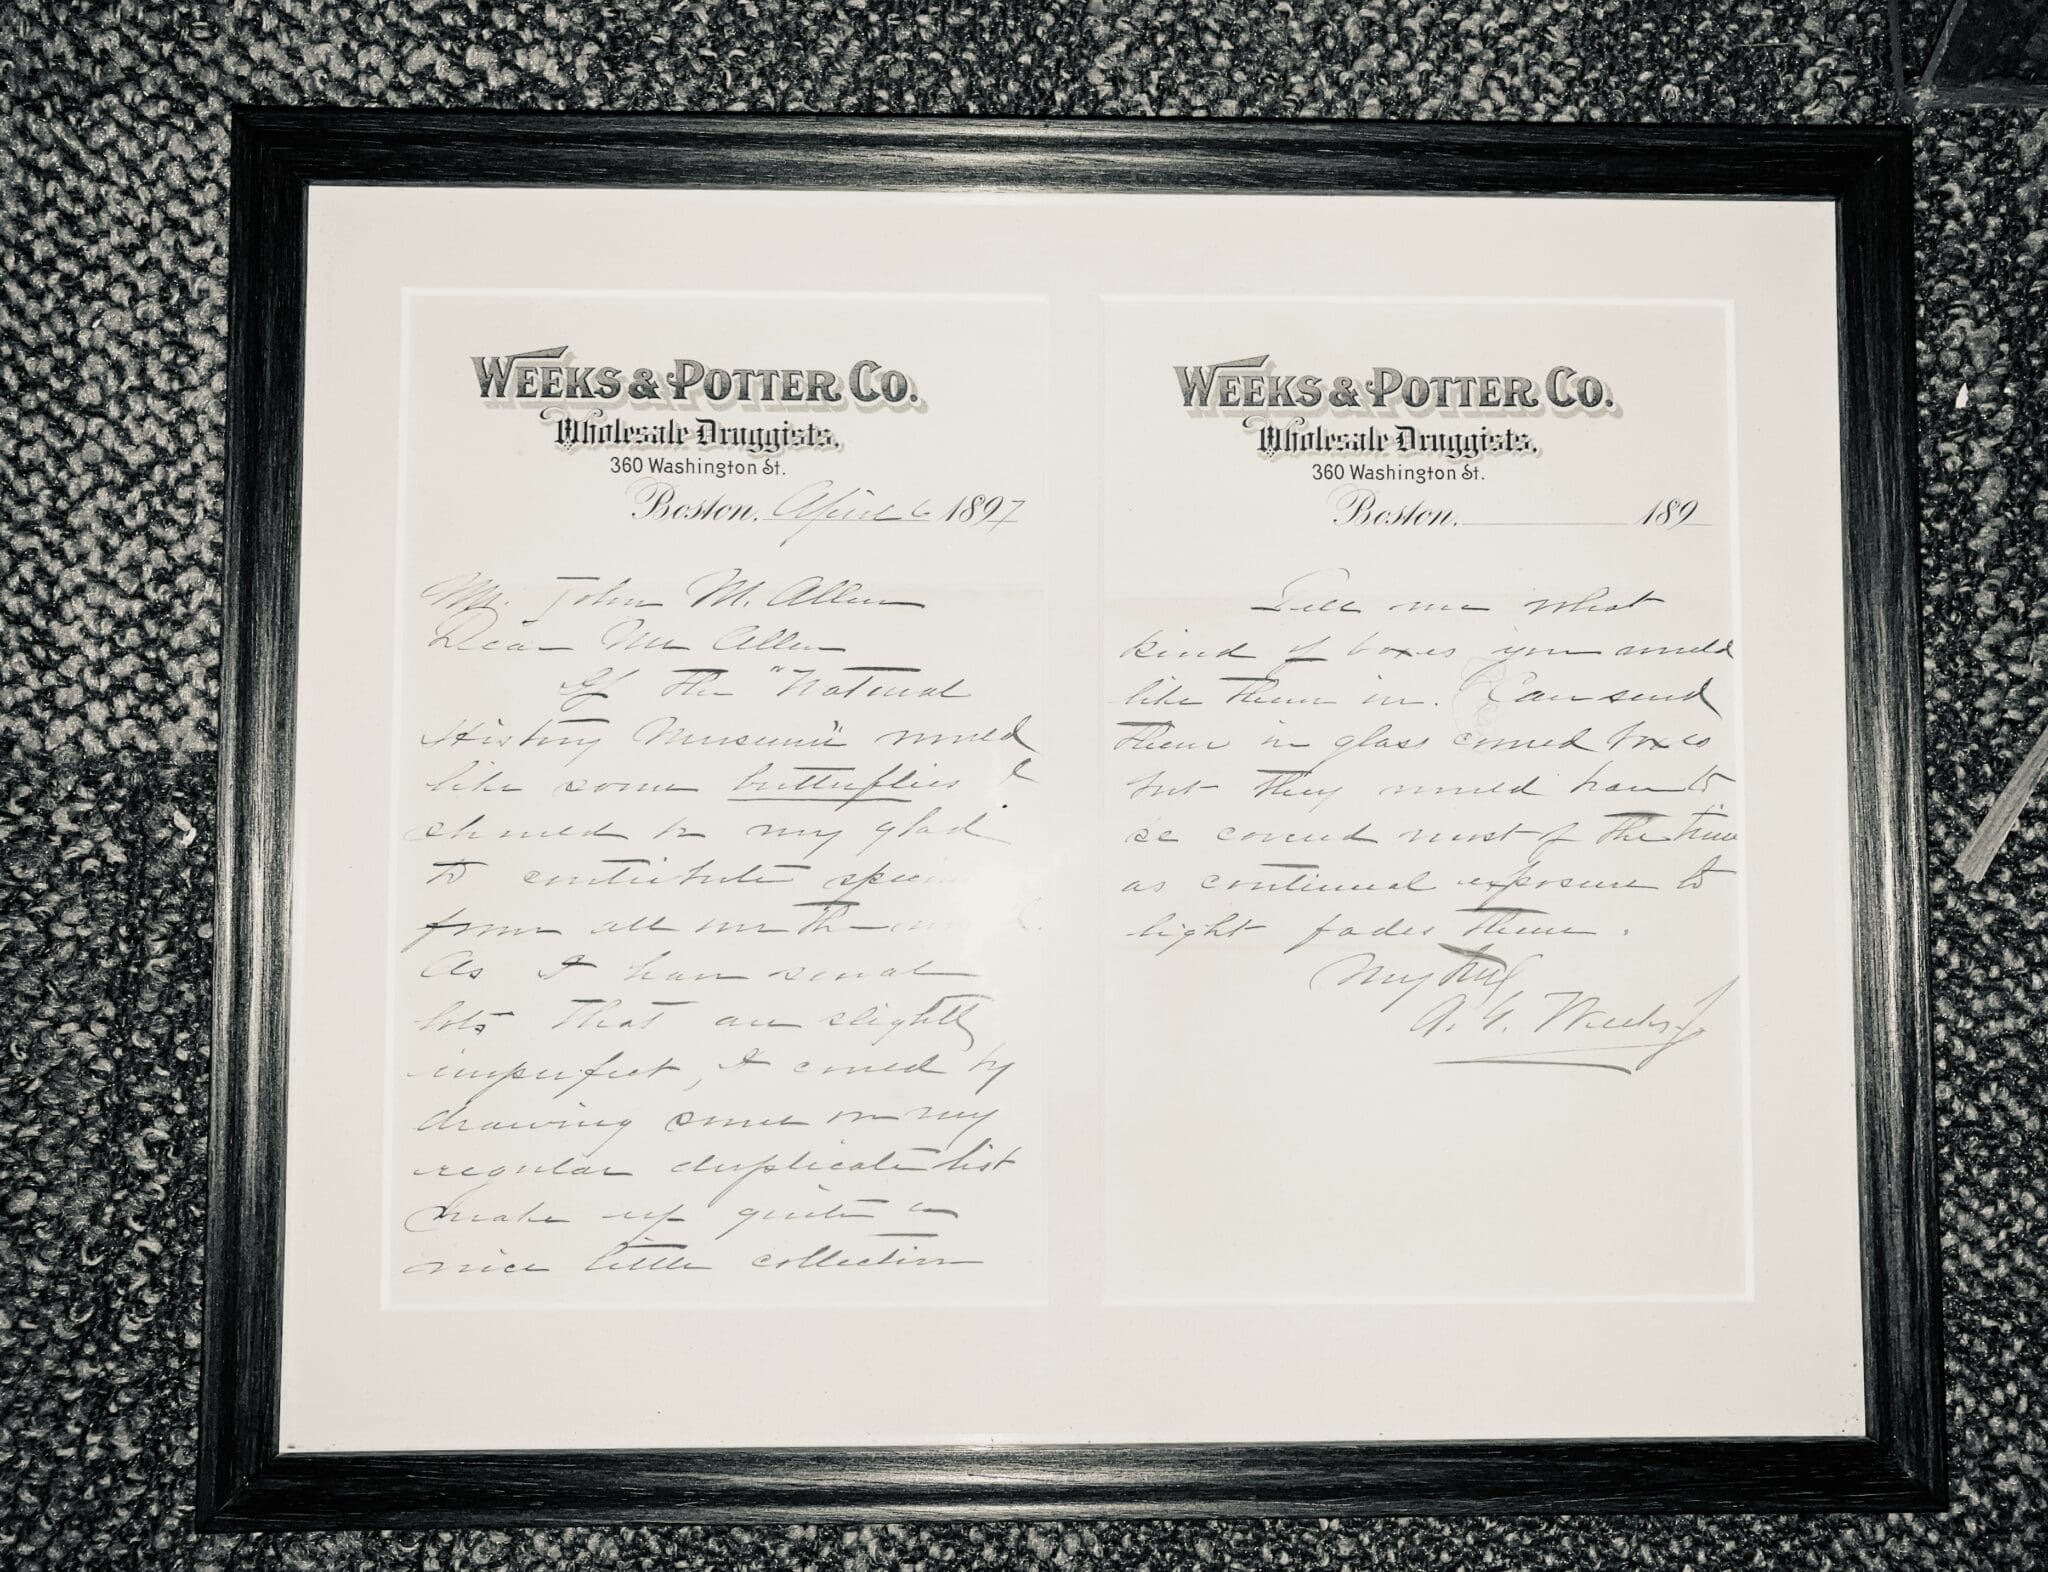 WEEKS & POTTER CO.
Wholesale Druggists.
360 Washington St.
Boston, April 6 1897
Mr. John M. Allen
Dear Mr Allen
If the "Natural
History Museum" would
like some butterflies I
should be very glad
to contribute
from all over the
As I have several
lots that are slightly
imperfect, I could by
drawing some on my
regular duplicate list
make up quite a
nice little collection
WEEKS & POTTER CO.
Wholesale Druggists.
360 Washington St.
Boston, 189
Tell me what
kind of boxes you would
like them in. Can send
them in glass covered boxes
but they would have to
be covered most of the time
as continual exposure to
light fades them.
Very truly
A. G. Weeks Jr